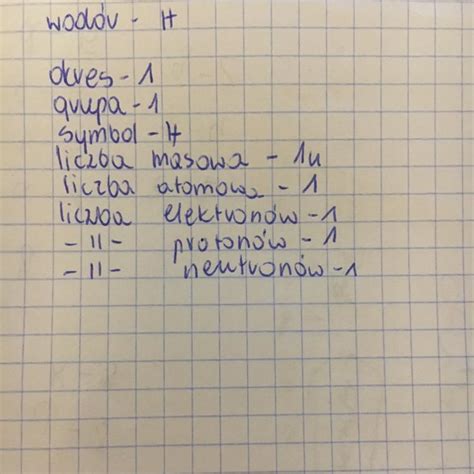 wodór - H
okres - 1
grupa - 1
symbol - H
liczba masowa - 1u
liczba atomowa - 1
liczba elektronów - 1
- 11 - protonów - 1
- 11 - neutronów - 1